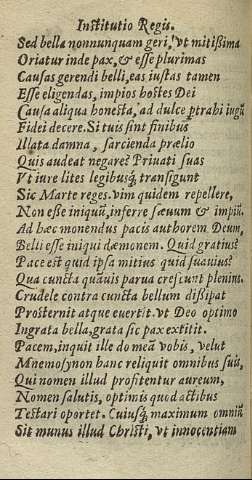 Institutio Regis.
Sed bella nonnunquam geri, vt mitißima
Oriatur inde pax, & esse plurimas
Causas gerendi belli, eas iustas tamen
Esse eligendas, impios hostes Dei
Causa aliqua honesta, ad dulce ꝑtrahi iugũ
Fidei decere. Si tuis sint finibus
Illata damna, sarcienda prælio
Quis audeat negare? Priuati suas
Vt iure lites legibusq́; transigunt
Sic Marte reges. vim quidem repellere,
Non esse iniquũ, inferre sæuum & impiũ.
Ad hæc monendus pacis authorem Deum,
Belli esse iniqui dæmonem. Quid gratius?
Pace est quid ipsa mitius quid suauius?
Qua cuncta quãuis parua crescunt plenius.
Crudele contra cuncta bellum dißipat
Prosternit atque euertit. vt Deo optimo
Ingrata bella, grata sic pax extitit.
Pacem, inquit ille do meã vobis, velut
Mnemosynon hanc reliquit omnibus suis,
Qui nomen illud profitentur aureum,
Nomen salutis, optimis quod actibus
Testari oportet. Cuiusq́; maximum omniũ
Sit munus illud Christi, vt innocentiam